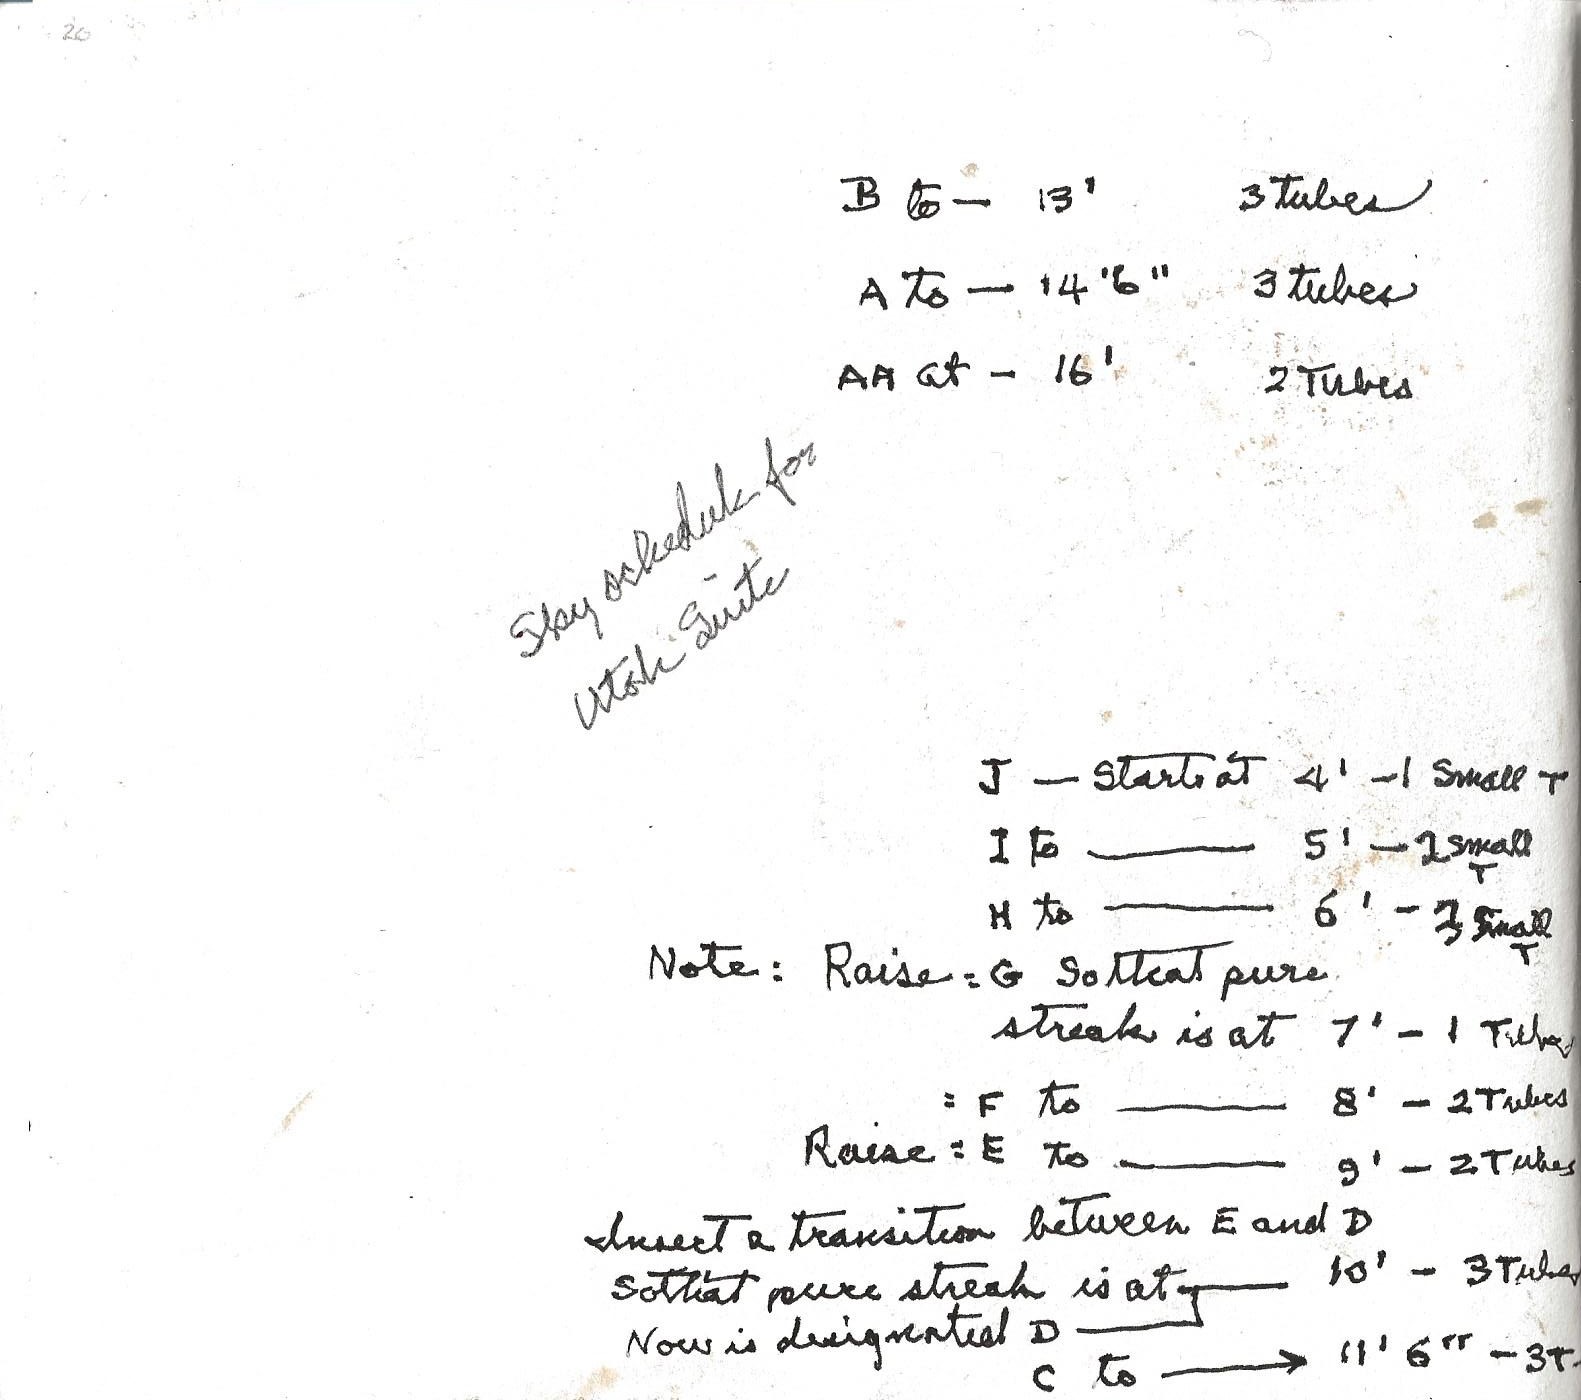 20
B to — 13' 3 tubes
A to — 14'6" 3 tubes
AA at — 16' 2 Tubes
Sky schedule for
Utah Suite
J — Starts at 4' — 1 Small T
I to — 5' — 2 small
T
H to — 6' — Small
T
Note: Raise = G So that pure
streak is at 7' — 1 Tube
= F to — 8' — 2 Tubes
Raise = E to — 9' — 2 Tubes
Insert a transition between E and D
So that pure streak is at — 10' — 3 Tubes
Now is designated D —
C to → 11' 6" — 3T.